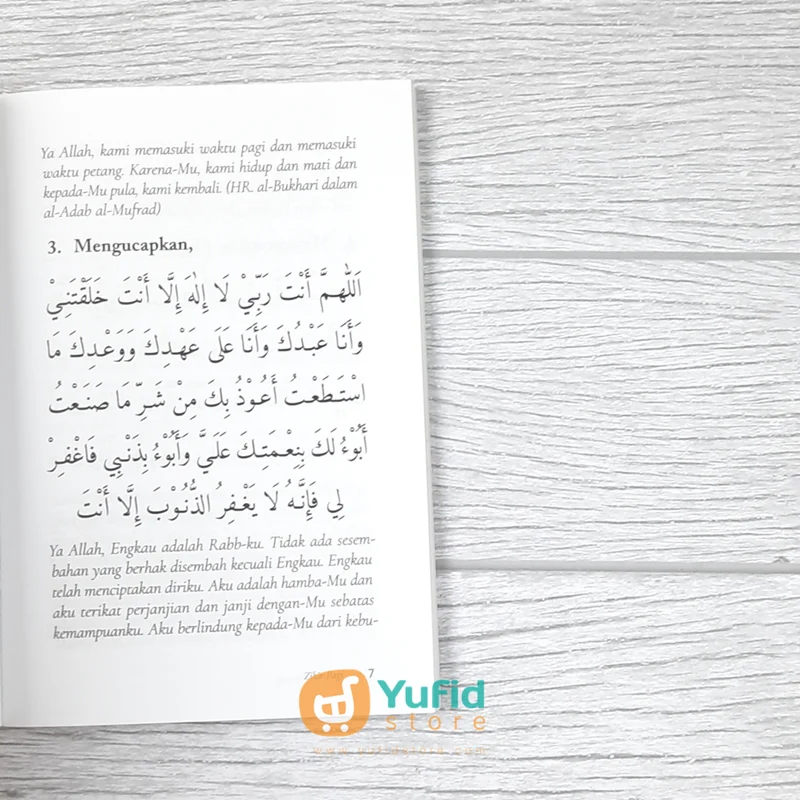 Ya Allah, kami memasuki waktu pagi dan memasuki
waktu petang. Karena-Mu, kami hidup dan mati dan
kepada-Mu pula, kami kembali. (HR. al-Bukhari dalam
al-Adab al-Mufrad)
3. Mengucapkan,
اَللّٰهُمَّ أَنْتَ رَبِّيْ لَا إِلٰهَ إِلَّا أَنْتَ خَلَقْتَنِيْ
وَأَنَا عَبْدُكَ وَأَنَا عَلَى عَهْدِكَ وَوَعْدِكَ مَا
اسْتَطَعْتُ أَعُوْذُ بِكَ مِنْ شَرِّ مَا صَنَعْتُ
أَبُوْءُ لَكَ بِنِعْمَتِكَ عَلَيَّ وَأَبُوْءُ بِذَنْبِي فَاغْفِرْ
لِي فَإِنَّهُ لَا يَغْفِرُ الذُّنُوْبَ إِلَّا أَنْتَ
Ya Allah, Engkau adalah Rabb-ku. Tidak ada sesem-
bahan yang berhak disembah kecuali Engkau. Engkau
telah menciptakan diriku. Aku adalah hamba-Mu dan
aku terikat perjanjian dan janji dengan-Mu sebatas
kemampuanku. Aku berlindung kepada-Mu dari kebu-
7
Yufid
store